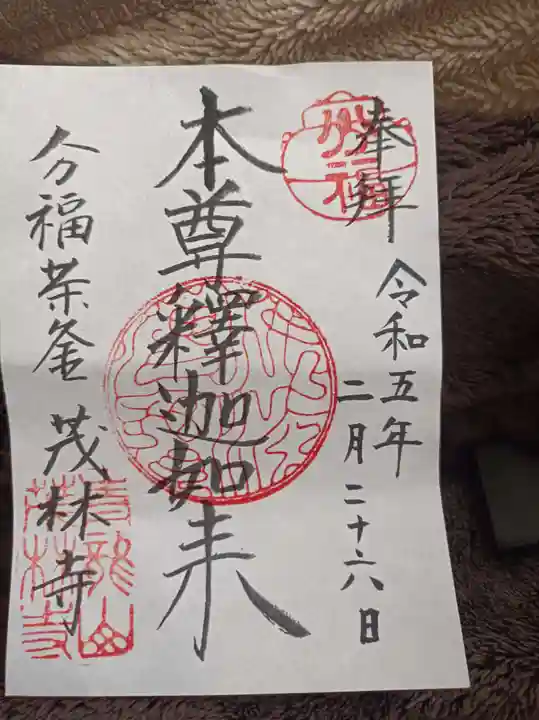 奉拝
令和五年
二月二十六日
本尊釋迦如来
分福茶釜 茂林寺
分福
青龍山
茂林寺